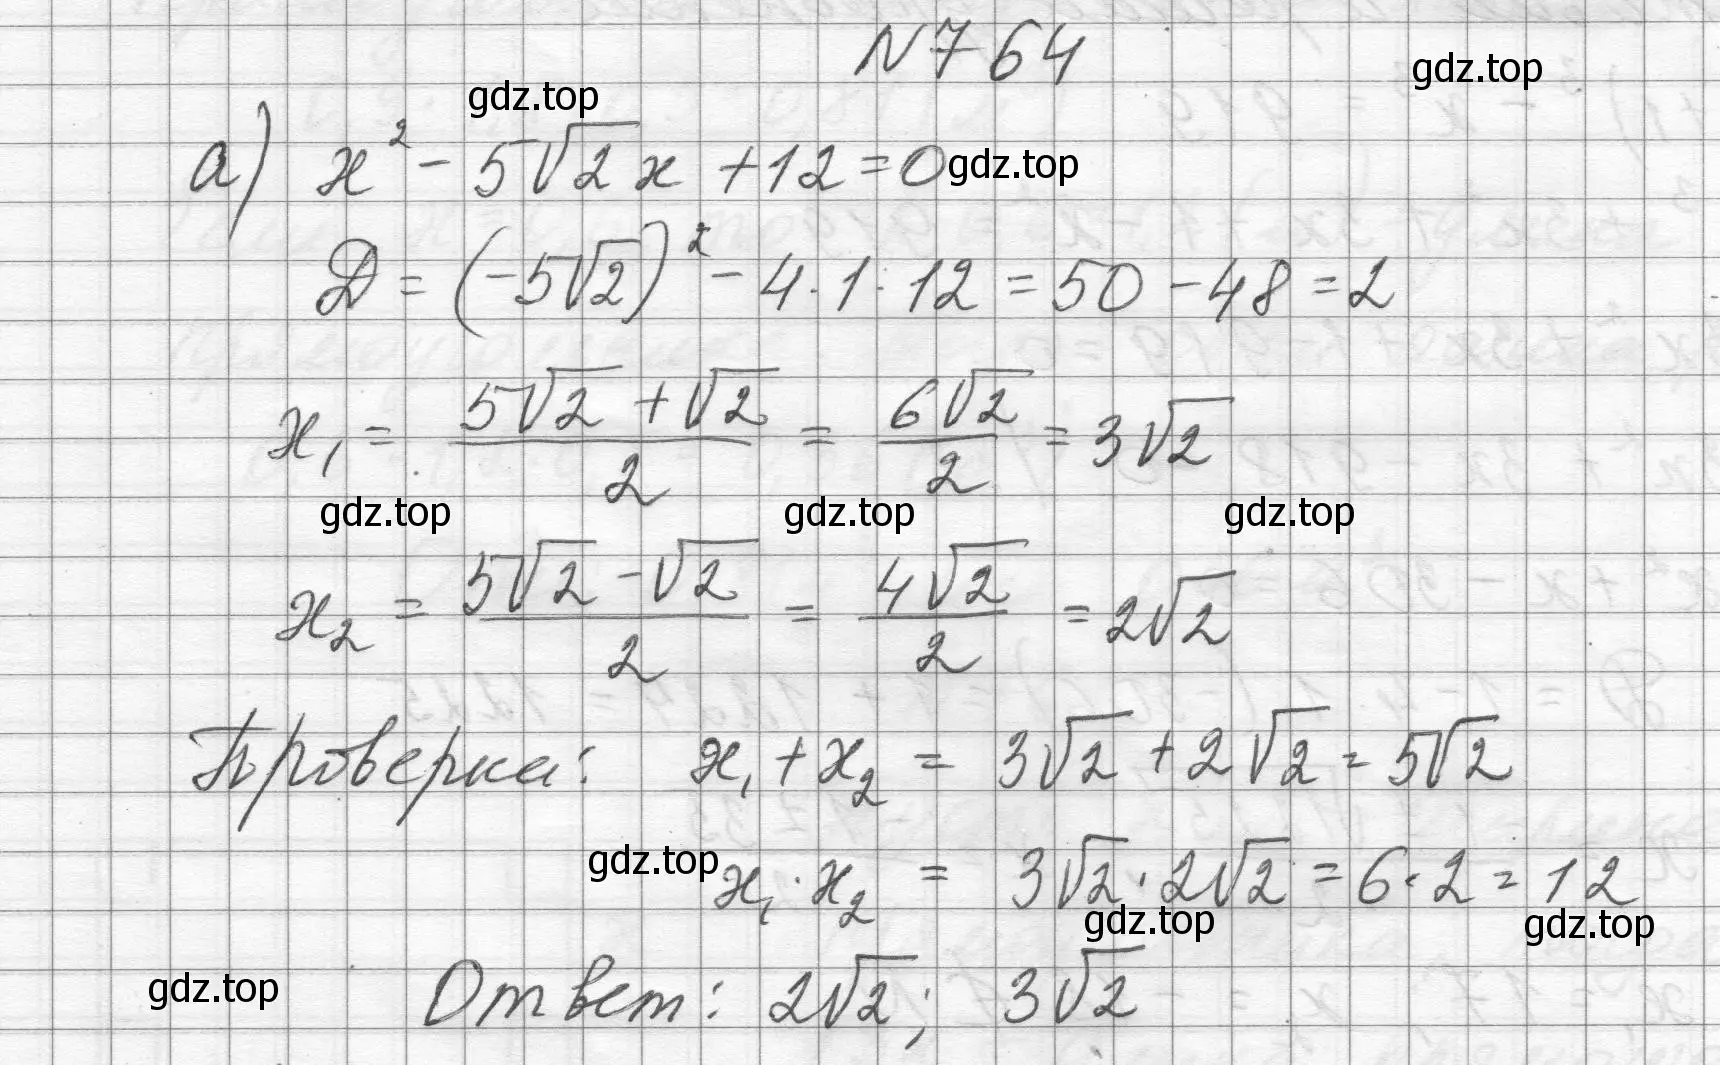 N 764
gdz.top
gdz.top
а) x² - 5√2x + 12 = 0
gdz.top
D = (-5√2)² - 4·1·12 = 50 - 48 = 2
x₁ = (5√2 + √2)/2 = 6√2/2 = 3√2
gdz.top gdz.top gdz.top
x₂ = (5√2 - √2)/2 = 4√2/2 = 2√2
Проверка: x₁ + x₂ = 3√2 + 2√2 = 5√2
gdz.top
x₁·x₂ = 3√2·2√2 = 6·2 = 12
gdz.top gdz.top
gdz.top
Ответ: 2√2; 3√2